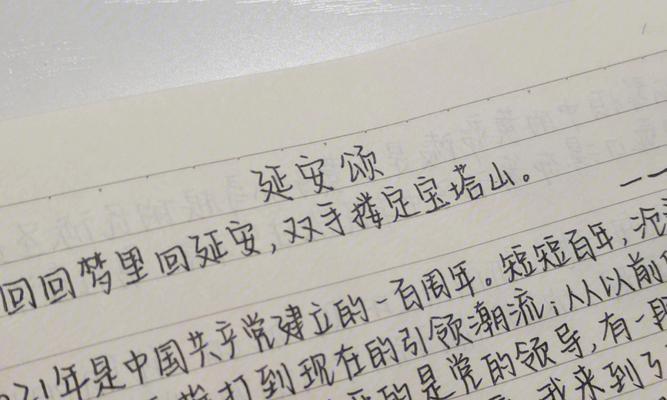 延安颂
回回梦里回延安,双手搂定宝塔山。 ——
2021年是中国共产党建立的一百周年。短短百年,沧
打到现在的引领潮流;从以前
的是党的领导,有一段
我来到了